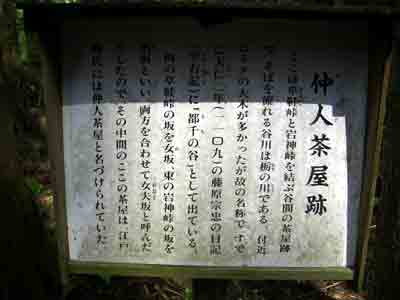 仲人茶屋跡
ここは草鞋峠と岩神峠を結ぶ谷間の茶屋跡
で、そばを流れる谷川は栃の川である。付近
にはトチの大木が多かったが故の名称で、すで
に天仁二年(一一〇九)の藤原宗忠の日記
(中右記)に「都千の谷」として出ている。
西の草鞋峠の坂を女坂、東の岩神峠の坂を
男坂といい、両方を合わせて女夫坂と呼んだ
りしたので、その中間のここの茶屋は、江戸
時代には仲人茶屋と名づけられていた。